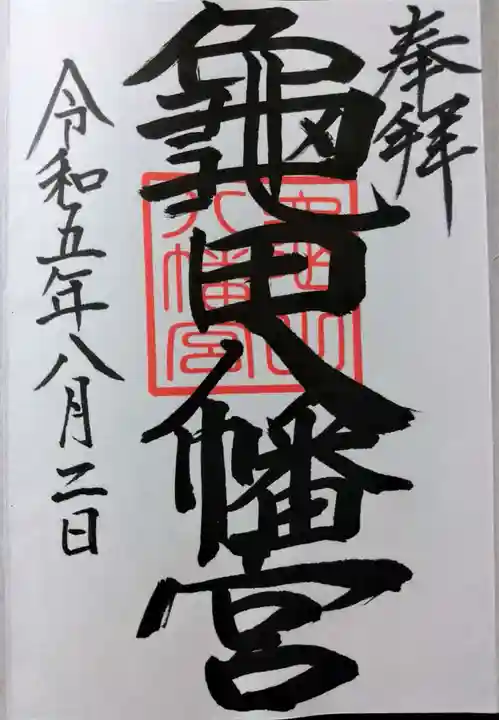 奉拜
龜甲八幡宮
八幡宮
令和五年八月二日